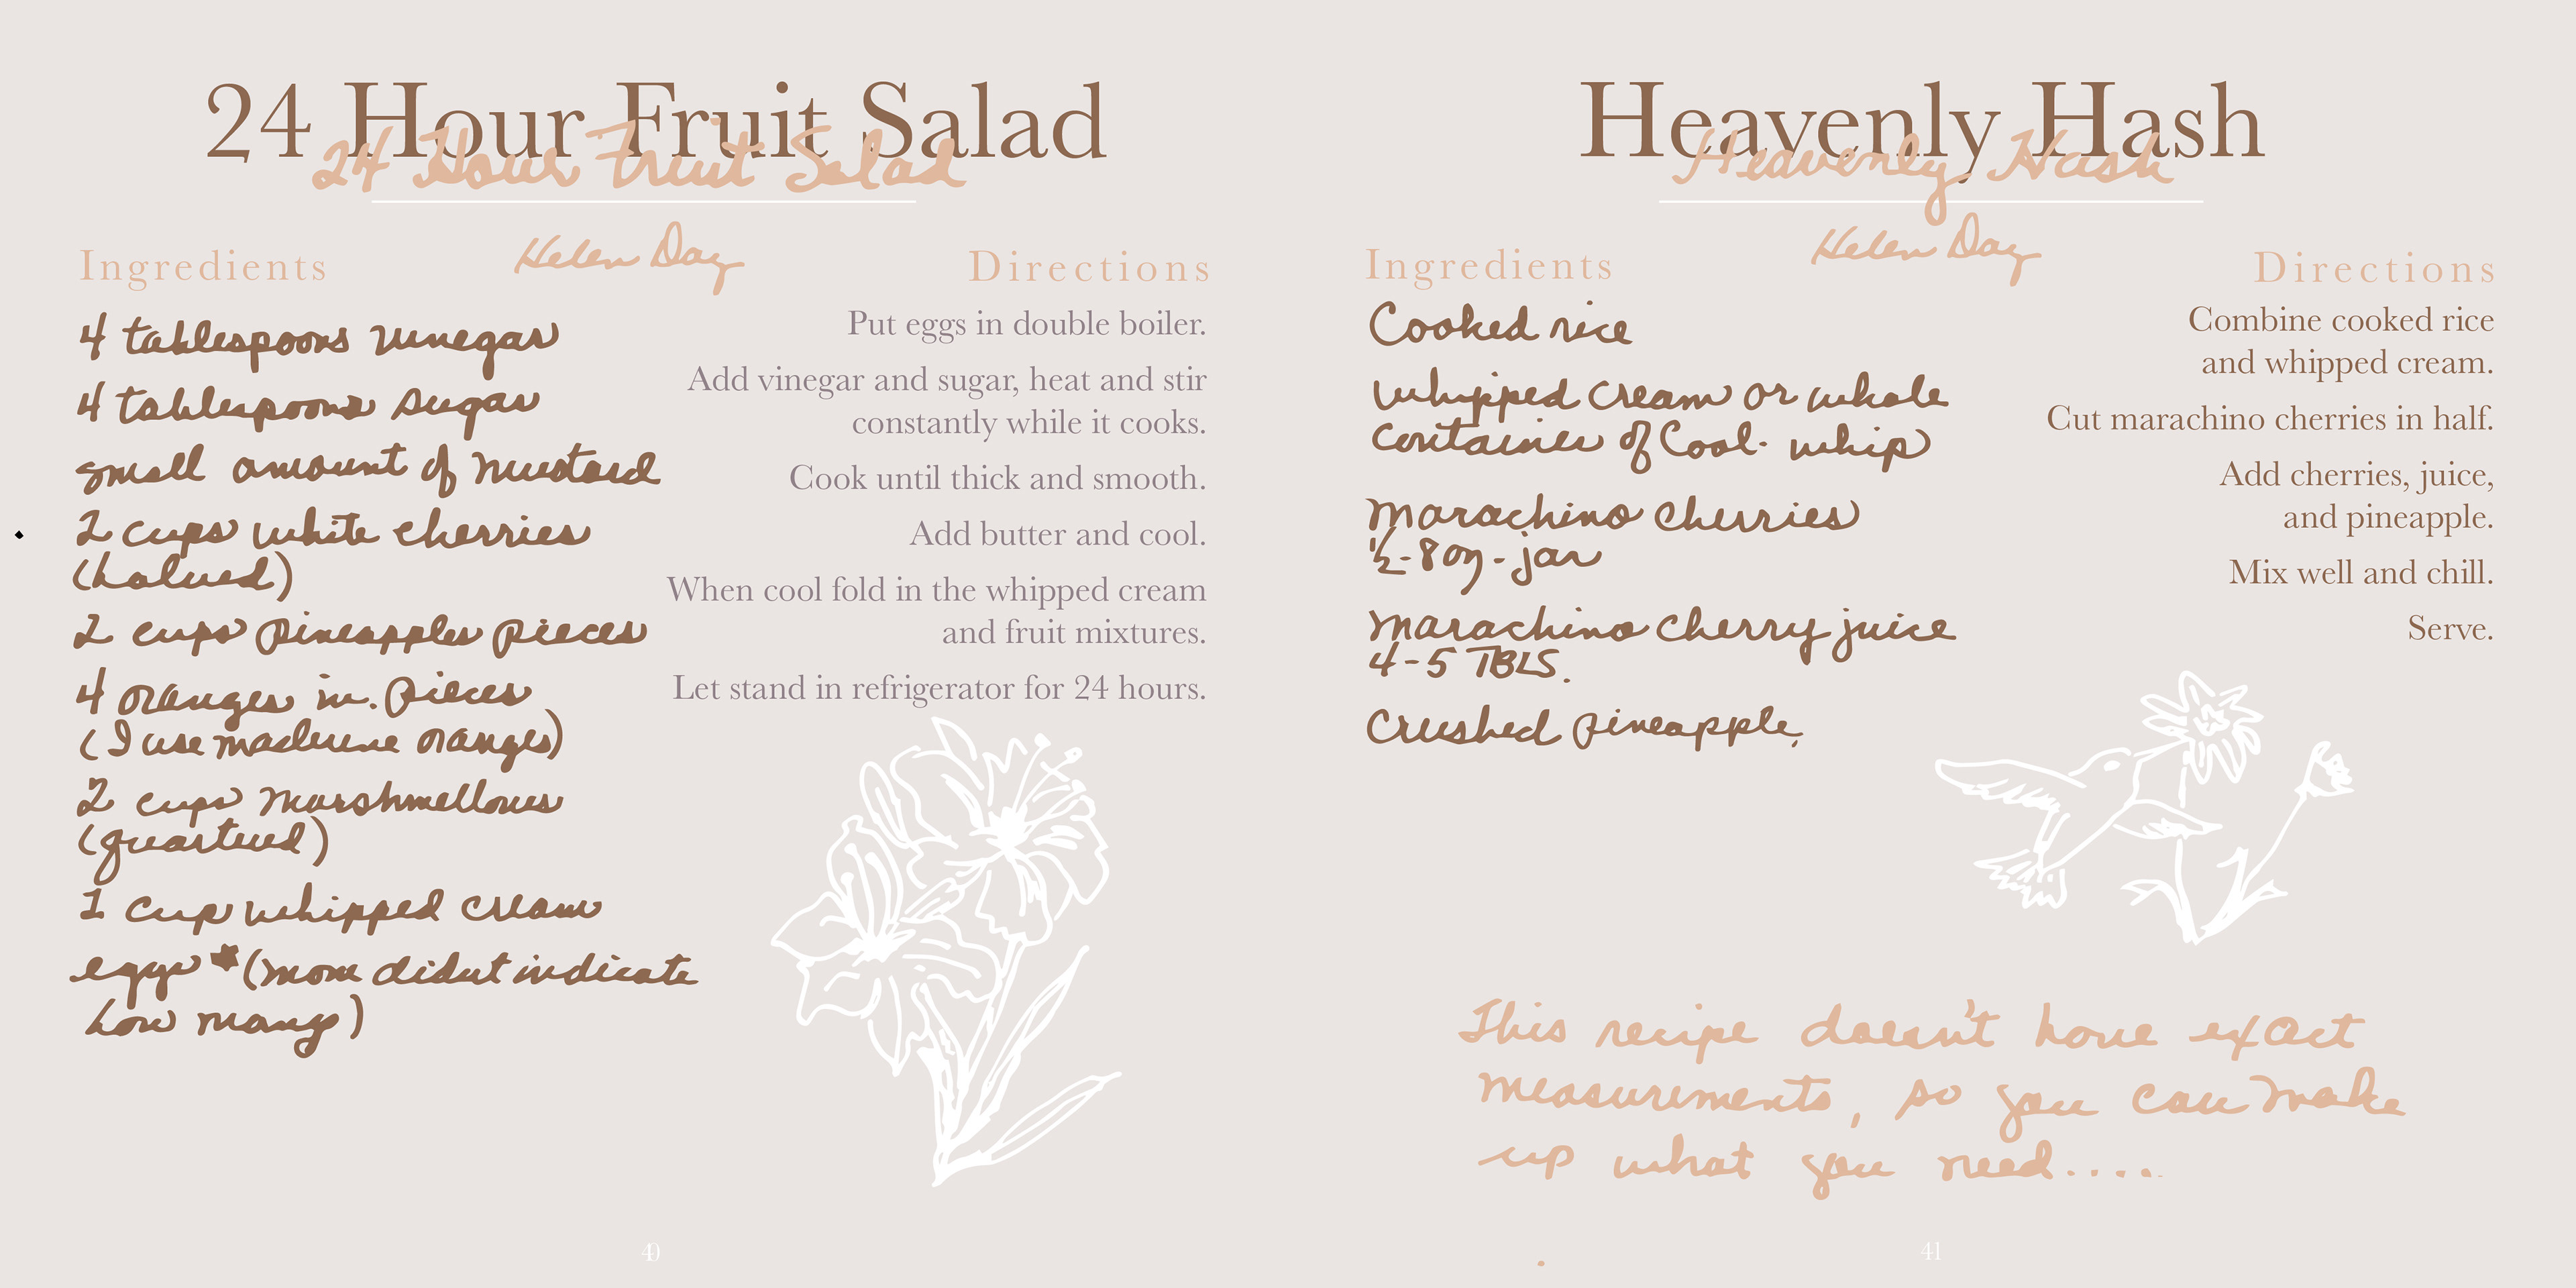 24 Hour Fruit Salad
24 Hour Fruit Salad
Helen Day
Ingredients
4 tablespoons vinegar
4 tablespoons sugar
small amount of mustard
2 cups white cherries
(halved)
2 cups pineapples pieces
4 oranges in. pieces
(I use maderine oranges)
2 cups marshmellows
(quartered)
1 cup whipped cream
eggs *(mom didnt indicate
how many)
Directions
Put eggs in double boiler.
Add vinegar and sugar, heat and stir
constantly while it cooks.
Cook until thick and smooth.
Add butter and cool.
When cool fold in the whipped cream
and fruit mixtures.
Let stand in refrigerator for 24 hours.
40
Heavenly Hash
Heavenly Hash
Helen Day
Ingredients
Cooked rice
whipped cream or whole
container of Cool-whip
marachino cherries
½-8oz-jar
marachino cherry juice
4-5 TBLS.
Crushed pineapple,
Directions
Combine cooked rice
and whipped cream.
Cut marachino cherries in half.
Add cherries, juice,
and pineapple.
Mix well and chill.
Serve.
This recipe doesn't have exact
measurements, so you can make
up what you need....
41